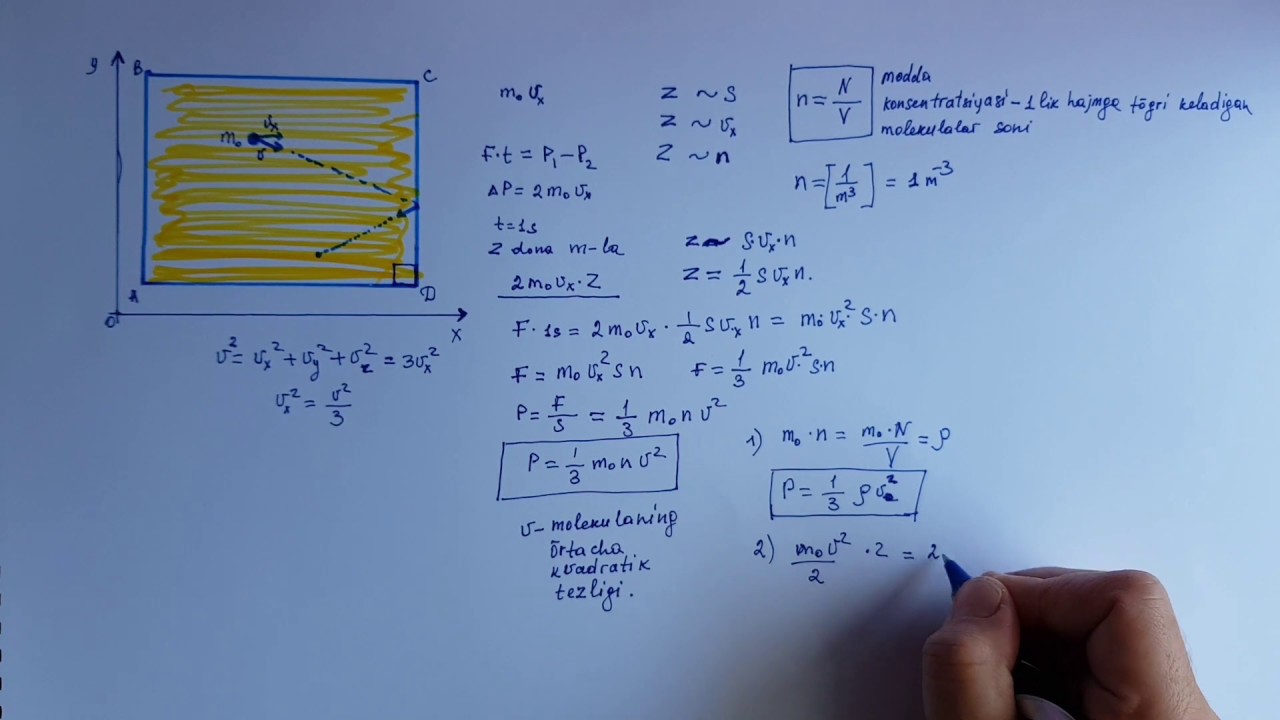 y
B
C
m₀
υₓ
υ
A
D
0
x
υ² = υₓ² + υᵧ² + υ_z² = 3υₓ²
υₓ² = υ²/3
m₀ υₓ
F·t = P₁ − P₂
ΔP = 2m₀υₓ
t = 1s
Z dona m-la
2m₀υₓ·Z
Z ~ S
Z ~ υₓ
Z ~ n
n = N/V
modda
konsentratsiyasi – 1 lik hajmga tōgri keladigan
molekulalar soni
n = [1/m³] = 1 m⁻³
Z ~ S·υₓ·n
Z = 1/2 S υₓ n.
F·1s = 2m₀υₓ · 1/2 S υₓ n = m₀ υₓ² S·n
F = m₀ υₓ² S n
F = 1/3 m₀ υ² S·n
P = F/S = 1/3 m₀ n υ²
P = 1/3 m₀ n υ²
υ – molekulaning
ōrtacha
kvadratik
tezligi.
1) m₀·n = m₀·N/V = ρ
P = 1/3 ρ υ²
2) m₀υ²/2 · 2 = 2